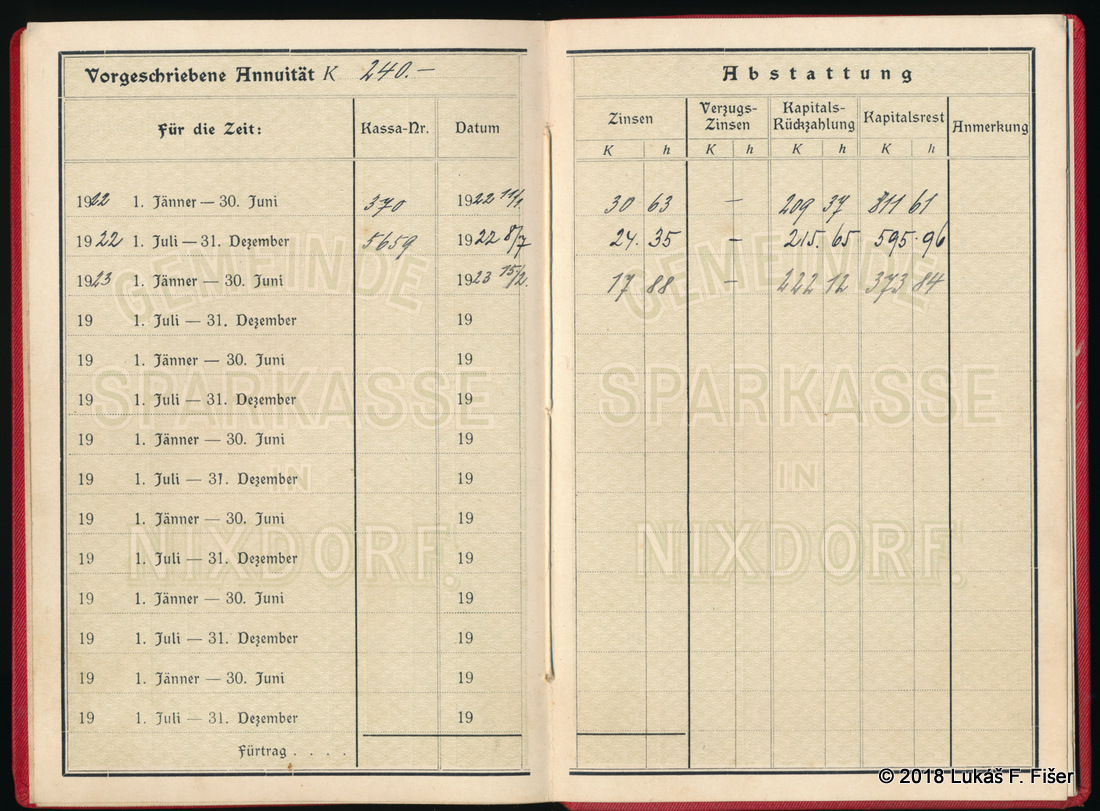 Vorgeschriebene Annuität K 240.—
Für die Zeit: Kassa-Nr. Datum
1922 1. Jänner — 30. Juni 370 1922 11/1
1922 1. Juli — 31. Dezember 5659 1922 8/7
1923 1. Jänner — 30. Juni 1923 15/2.
19 1. Juli — 31. Dezember 19
19 1. Jänner — 30. Juni 19
19 1. Juli — 31. Dezember 19
19 1. Jänner — 30. Juni 19
19 1. Juli — 31. Dezember 19
19 1. Jänner — 30. Juni 19
19 1. Juli — 31. Dezember 19
19 1. Jänner — 30. Juni 19
19 1. Juli — 31. Dezember 19
19 1. Jänner — 30. Juni 19
19 1. Juli — 31. Dezember 19
Fürtrag . . . .
GEMEINDE
SPARKASSE
IN
NIXDORF.
Abstattung
Zinsen Verzugs-Zinsen Kapitals-Rückzahlung Kapitalsrest Anmerkung
K h K h K h K h
30 63 — 209 37 811 61
24. 35 — 215. 65 595. 96
17 88 — 222 12 373 84
GEMEINDE
SPARKASSE
IN
NIXDORF.
© 2018 Lukáš F. Fišer